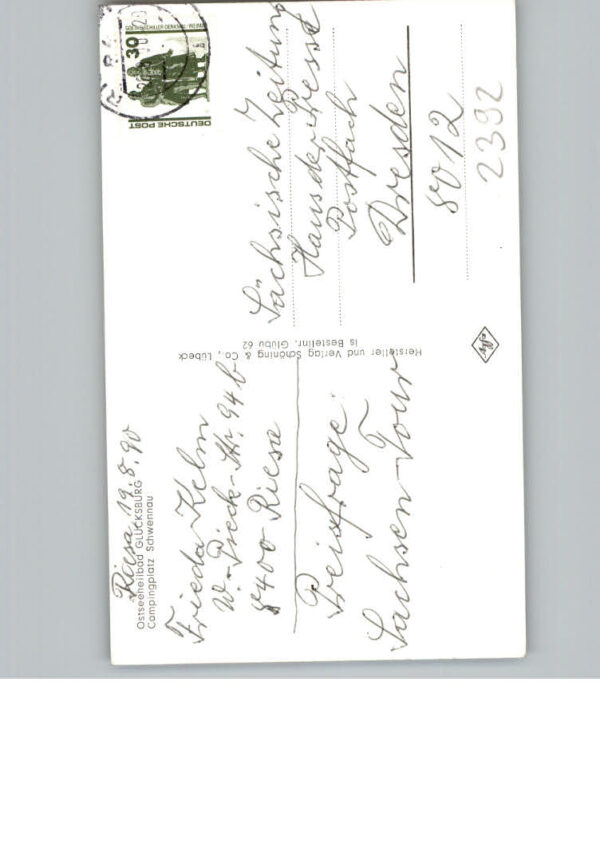 Riesa 19.8.90
Ostseeheilbad GLÜCKSBURG
Campingplatz Schwennau
Frieda Kelm
W.-Pieck-Str. 94b
8400 Riesa
Preisfrage:
Sachsen-Tour
Hersteller und Verlag Schöning & Co., Lübeck
is Bestellnr. Glübu 62
30
DEUTSCHE POST
Sächsische Zeitung
Haus der Presse
Postfach
Dresden
8012
2392